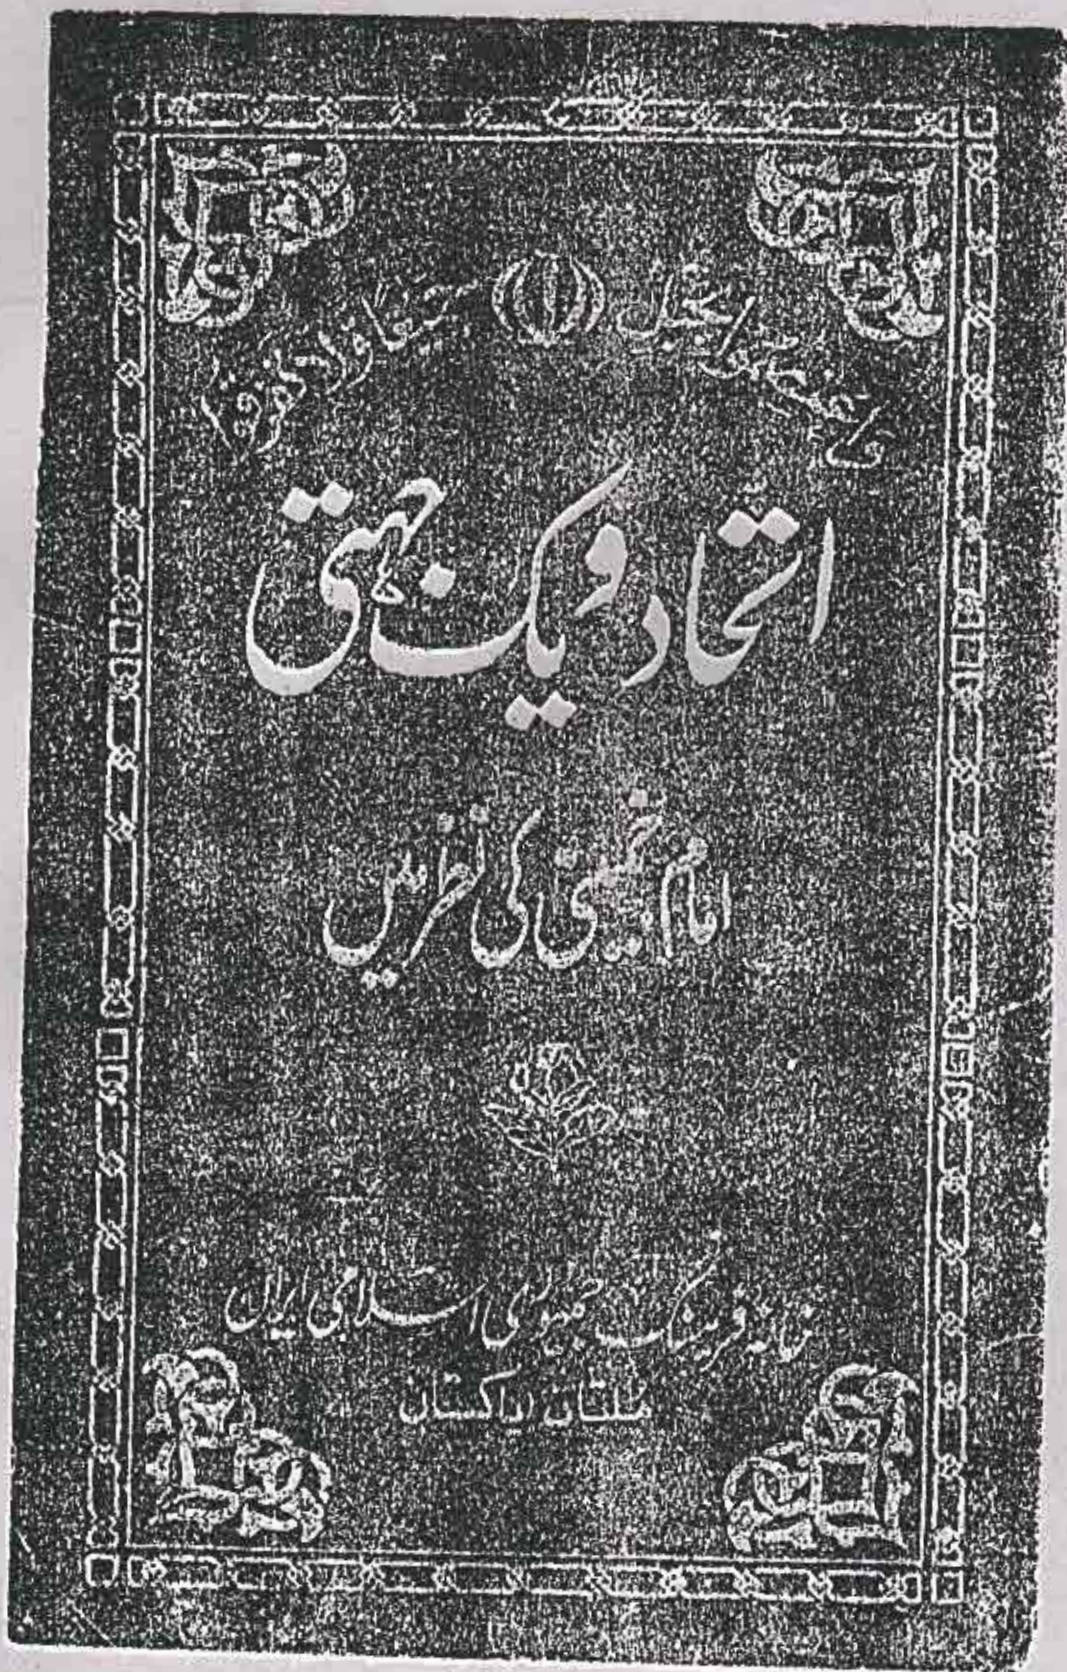 واعتصموا بحبل الله جمیعاً ولا تفرقوا
اتحاد و یک جہتی
امام خمینی کی نظر میں
خانہ فرہنگ جمہوری اسلامی ایران
ملتان پاکستان